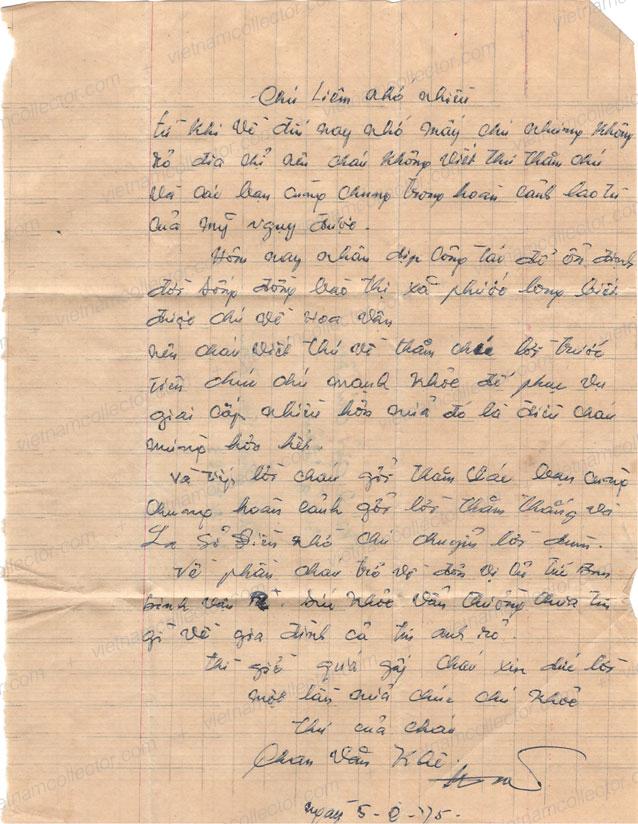 Chú Liêm nhớ nhiều
từ khi về đến nay nhớ mấy chú nhưng không
rõ địa chỉ nên cháu không viết thư thăm chú
và các bạn cùng chung trong hoàn cảnh lao tù
của mỹ ngụy được.
Hôm nay nhân dịp công tác để ổn định
đời sống đồng bào thị xã phước long biết
được chú về
nên cháu viết thư về thăm chú lời trước
tiên chúc chú mạnh khỏe để phục vụ
giai cấp nhiều hơn nữa đó là điều cháu
mừng hơn hết.
và lời cháu gởi thăm các bạn cùng
chung hoàn cảnh gởi lời thăm Thắng và
nhờ chú chuyển lời dùm.
Về phần cháu trở về đơn vị cũ
binh vận sức khỏe vẫn thường chưa tin
gì về gia đình cả
thì giờ quá gấp cháu xin dứt lời
một lần nữa chúc chú khỏe
thư của cháu
Văn Khê.
ngày 5-2-75.
vietnamcollector.com